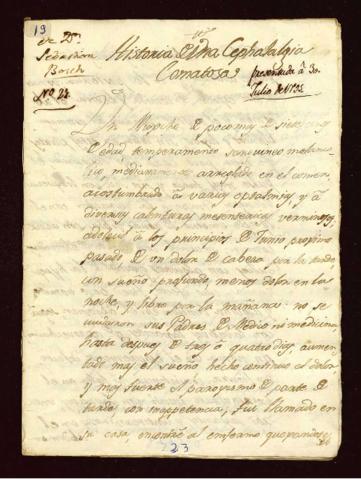 19
de Dn.
Sebastian
Bosch
No. 24
Historia De Una Cephalalgia
Comatosa
presentada à 30
Julio de
Un Mozito De poco mas De siete
edad, temperamento sanguineo melanco
lico, medianamente arreglado en el comer,
acostumbrado à varias optalmias, y à
diversas calenturas mesentericas verminosas
à los principios De Junio proximo
pasado De un dolor De cabeza por la tarde
con sueño profundo, menos dolor en la
noche, y libre por la mañana: no se
cuidaron sus Padres De Medico ni medicina,
hasta despues De tres à quatro dias, aumen
tado mas el sueño hecho continuo el dolor
y mas fuerte el paroxismo De parte De
tarde con inappetencia, fui llamado en
su casa, encontrè al enfermo
23